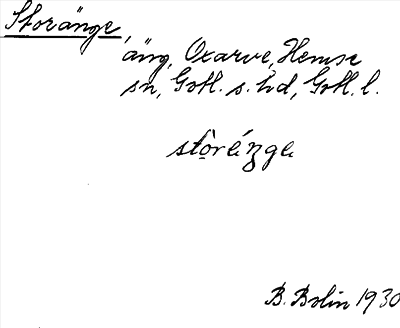 Storänge,
äng, Oxarve, Hemse
sn, Gotl. s. hd, Gotl. l.
stòrénge
B. Bolin 1930